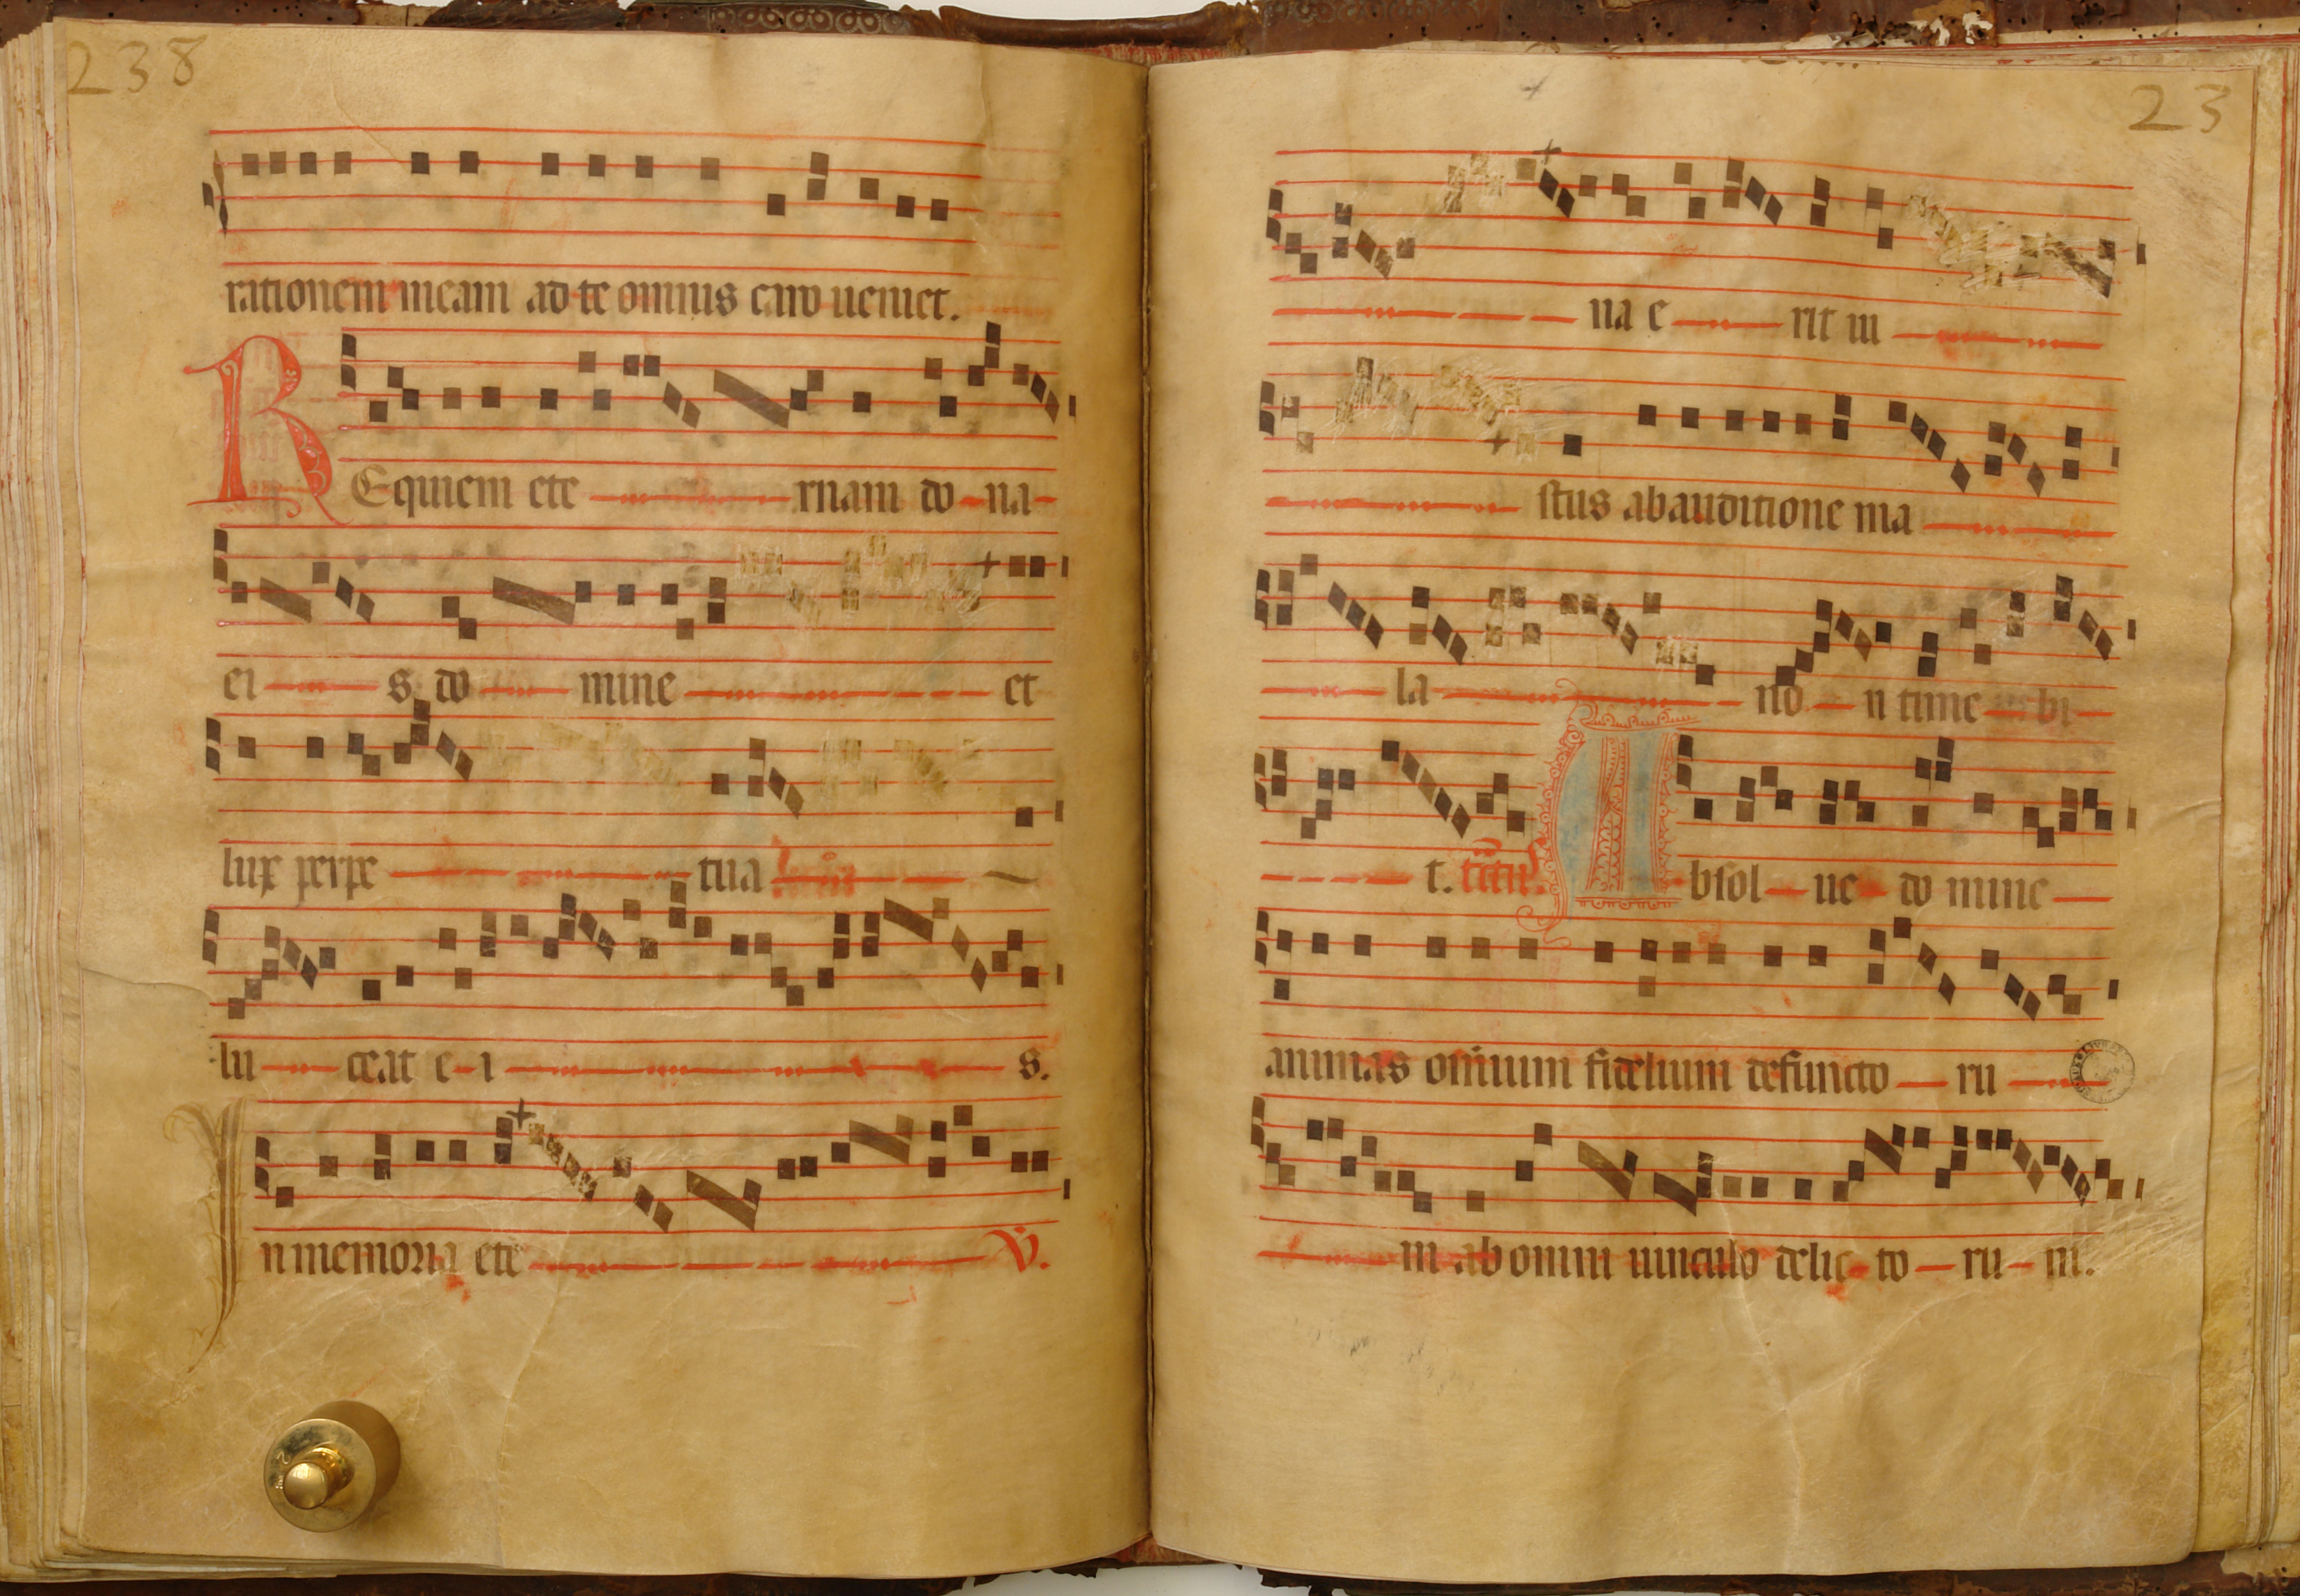 238
rationem meam ad te omnis caro ueniet.
REquiem ete rnam do na
ei s do mine et
lux perpe tua
lu ceat e i s.
In memoria ete V.
23
na e rit iu
stus ab auditione ma
la no n time bi
t. Absol ue do mine
animas omium fidelium defuncto ru
m ab omni uinculo delic to ru m.